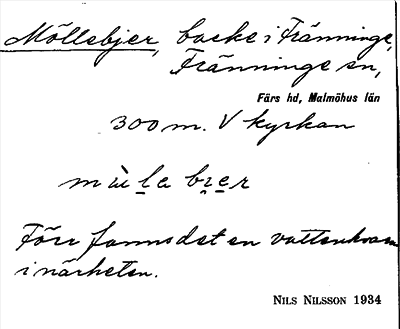 Möllebjer, backe i Fränninge,
Fränninge sn,
Färs hd, Malmöhus län
300 m. V kyrkan
mù̀l̠a br̠e̠r
Förr fanns det en vattenkvarn
i närheten.
NILS NILSSON 1934